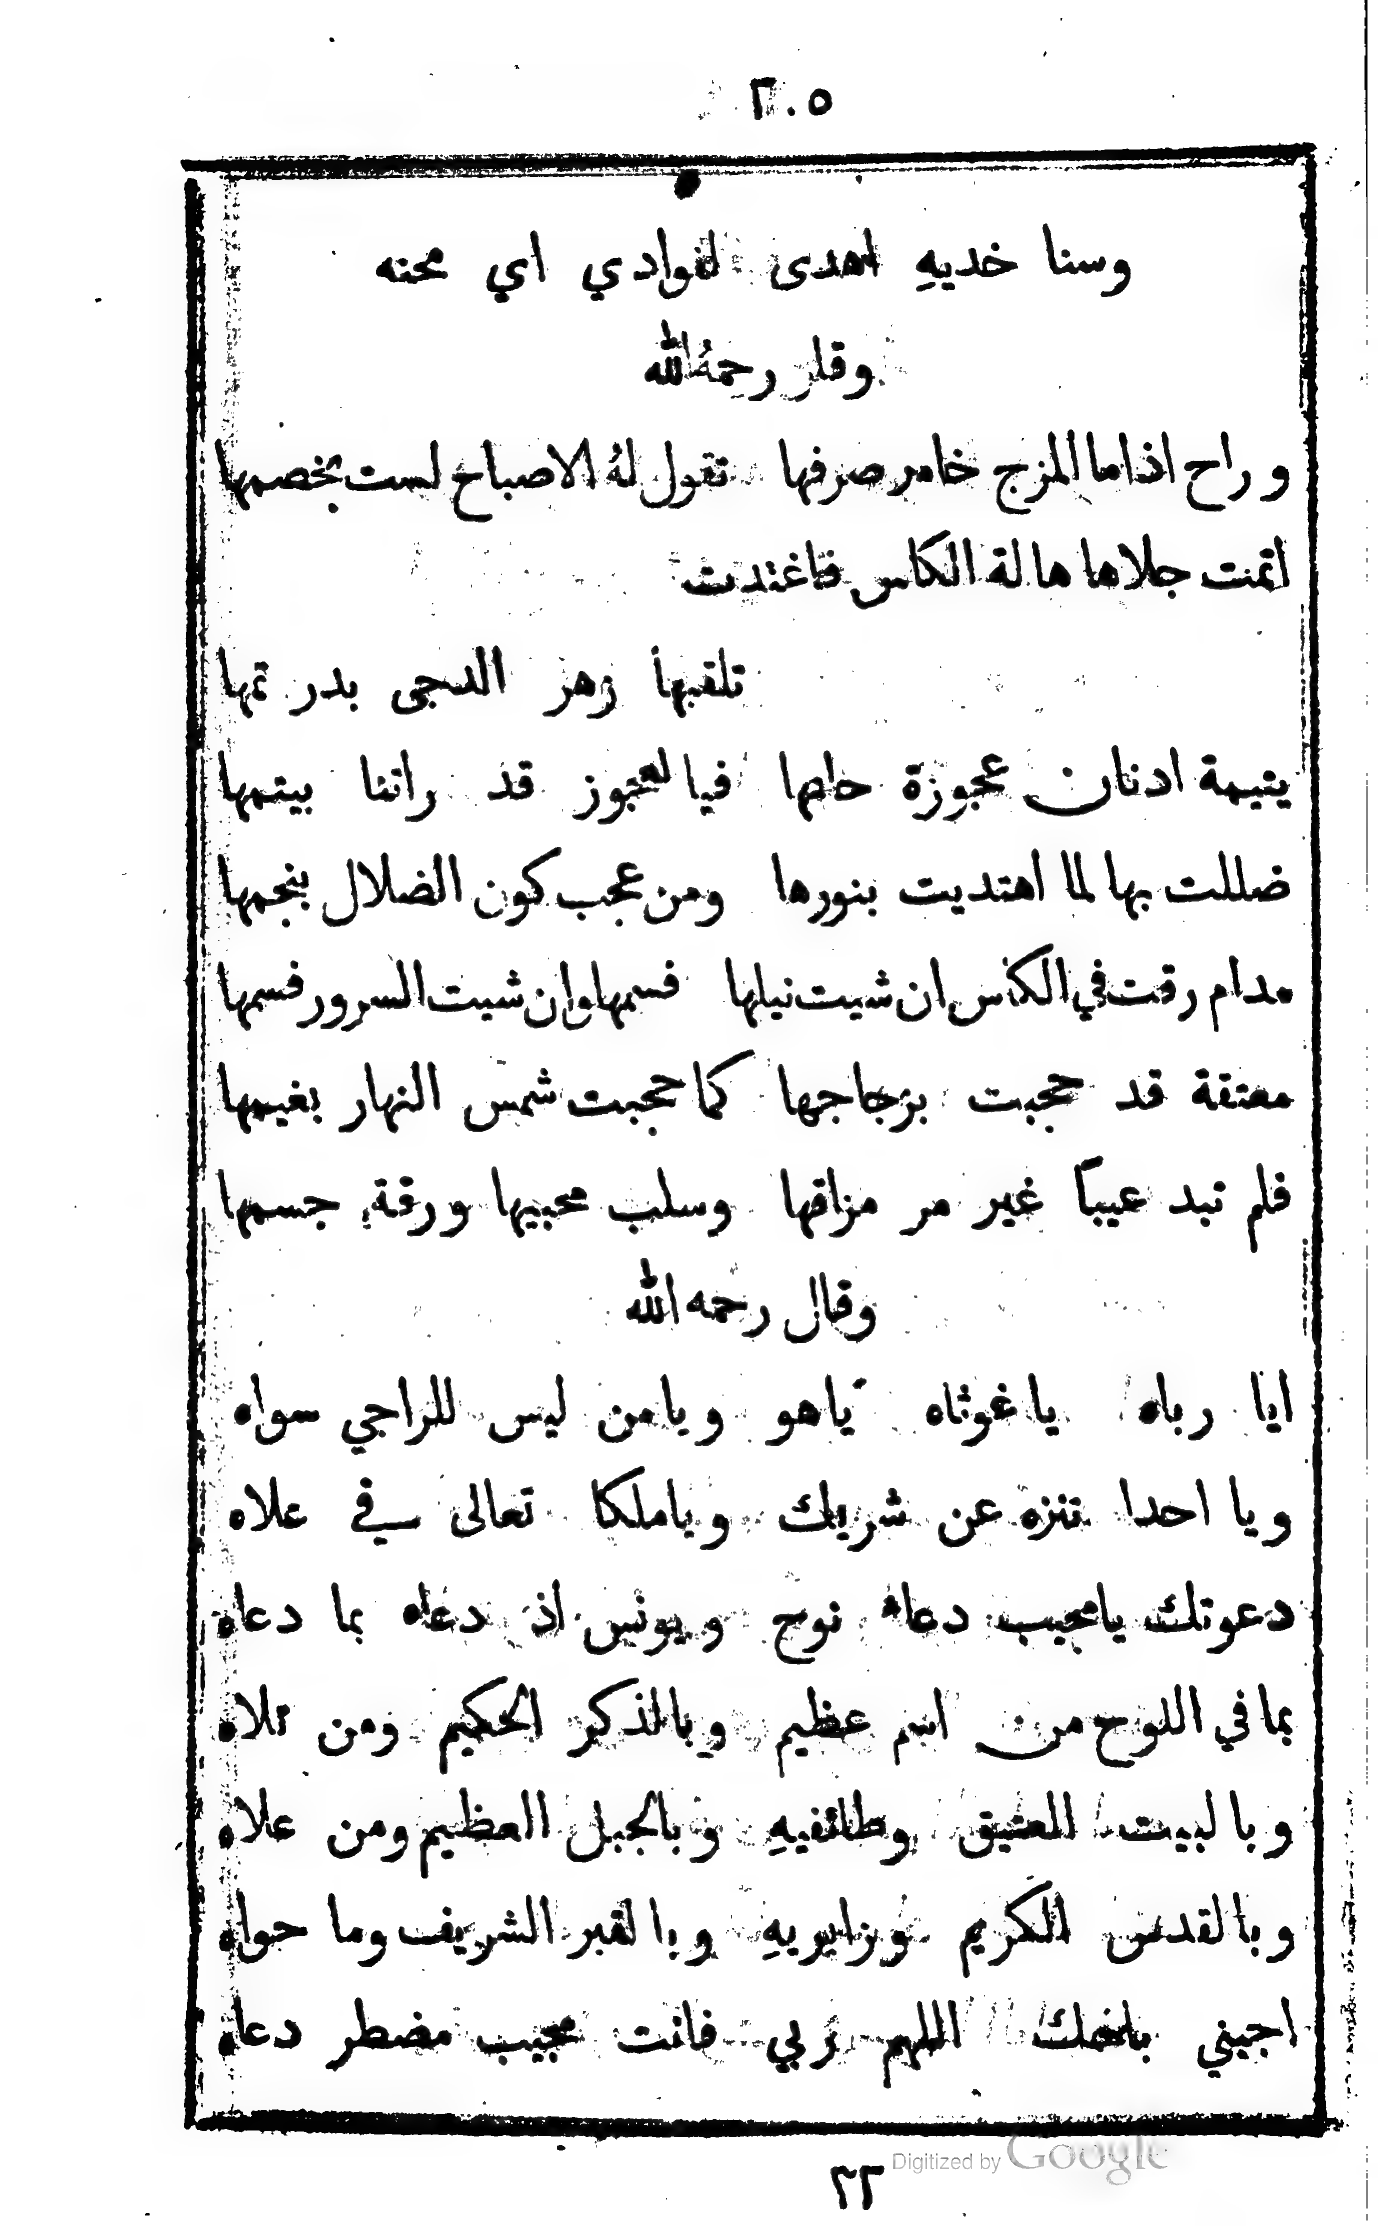 ٢٠٥
وسنا خديهِ اهدى لفوادي اي محنه
وقال رحمهُ الله
وراح اذاما المزج خامر صرفها تقول لهُ الاصباح لست بخصمها
اتمنت جلاها هالة الكاس فاغتدت
تلقبها زهر الدجى بدر تمها
يتيمة ادنان عجوزة حانها فيا لعجوز قد راتنا بيتمها
ضللت بها لما اهتديت بنورها ومن عجب كون الضلال بنجمها
مدام رقت في الكاس ان شيت نيلها فسمها وان شيت السرور فسمها
معتقة قد حجبت بزجاجها كما حجبت شمس النهار بغيمها
فلم تبد عيباً غير مر مزاقها وسلب محبيها ورقة جسمها
وقال رحمه الله
ايا رباه يا غوثاه ياهو ويامن ليس للراجي سواه
ويا احدا تنزه عن شريك وياملكا تعالى في علاه
دعوتك يامجيب دعاه نوح ويونس اذ دعاه بما دعاه
بما في اللوح من اسم عظيم وبالذكر الحكيم ومن تلاه
وبالبيت العتيق وطائفيهِ وبالجبل العظيم ومن علاه
وبالقدس الكريم وزايريهِ وبالقبر الشريف وما حواه
اجبني اللهم ربي فانت مجيب مضطر دعاه
٢٢
Digitized by Google